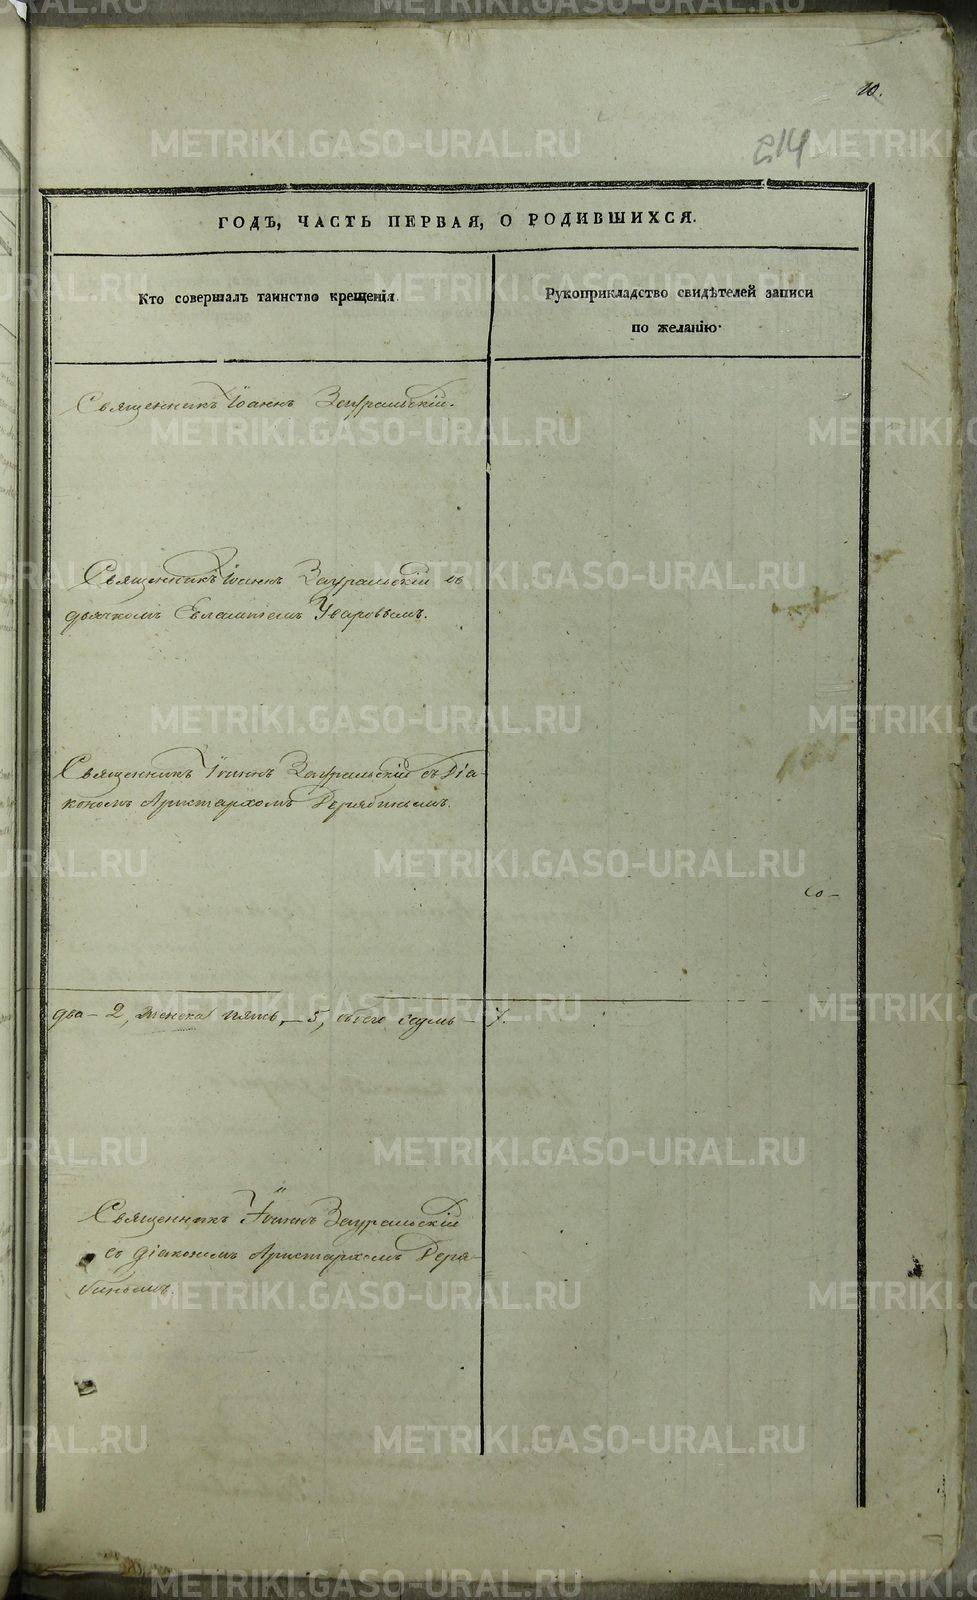 10.
214
ГОДЪ, ЧАСТЬ ПЕРВАЯ, О РОДИВШИХСЯ.
Кто совершалъ таинство крещенія.
Рукоприкладство свидѣтелей записи
по желанію.
Священникъ Іоаннъ Зауральскій.
Священникъ Іоаннъ Зауральскій съ
дьячкомъ Евлампіемъ Уваровымъ.
Священникъ Іоаннъ Зауральскій съ Діа-
кономъ Аристархомъ Дерябинымъ.
со-
два - 2, женска пять, - 5, обоего седмь - 7.
Священникъ Іоаннъ Зауральскій
съ діакономъ Аристархомъ Деря-
бинымъ.
METRIKI.GASO-URAL.RU